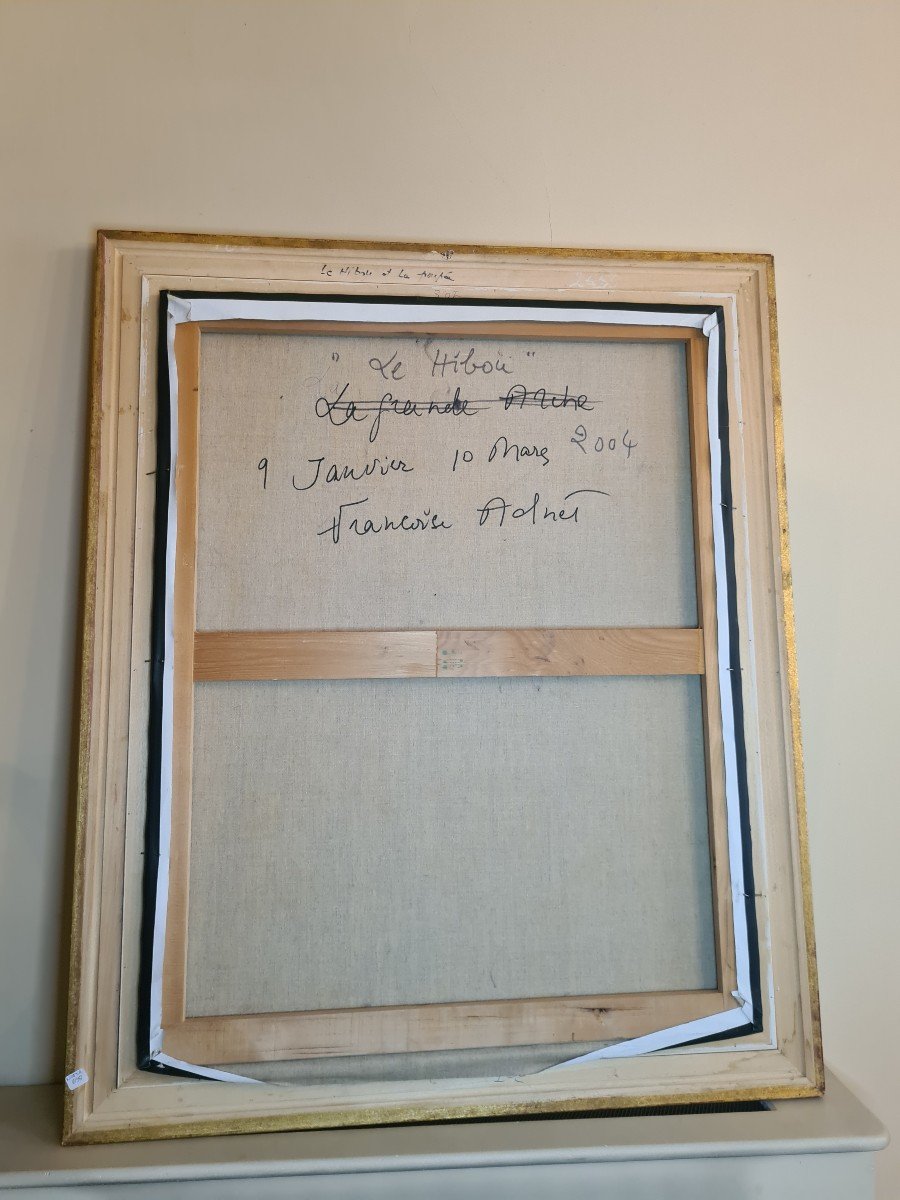 Le Hibou et la
245
" Le Hiboü "
La grande Arche
9 Janvier 10 Mars 2004
Francoise Adnet